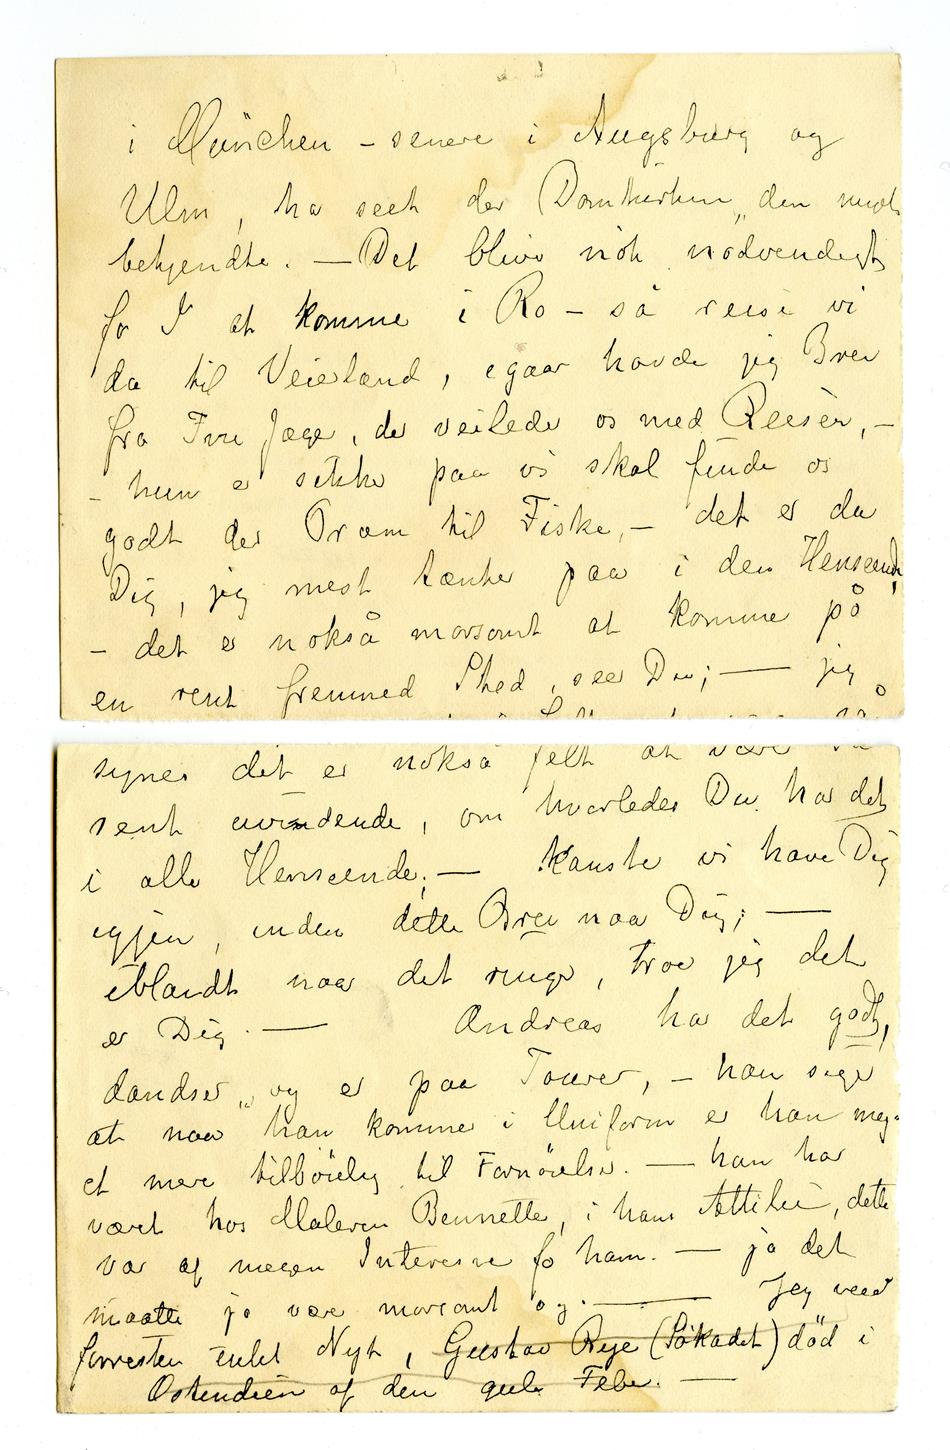 i München – senere i Augsburg og
Ulm, har seet der Domkirken „den meget
bekjendte. — Det bliver nok nødvendigt
for I at komme i Ro – så reiser vi
da til Veierland, igaar havde jeg Brev
fra Fru Jæger, der veileder os med Reisen, –
– hun er sikker paa vi skal finde os
godt der Oram til Fiske, – det er da
Dig, jeg mest tænker paa i den Henseende,
– det er nokså morsomt at komme på
en rent fremmed Sted, seer Du; — jeg
synes det er nokså felt at være så
rent uvidende, om hvorledes Du har det
i alle Henseender; — kanske vi have Dig
igjen, inden dette Brev naar Dig; —
iblandt naar det ringer, troer jeg det
er Dig. — Andreas har det godt,
dandser „ og er paa Tourer, – han siger
at naar han kommer i Uniform er han meg-
et mere tilbøielig til Fornøielser. — han har
været hos Maleren Bennetter, i hans Attilier, dette
var af megen Interesse for ham. — ja det
maatte jo være morsomt og. — Jeg veed
forresten intet Nyt, Gustav Rye (Søkadet) død i
Ostendien af den gule Feber. —